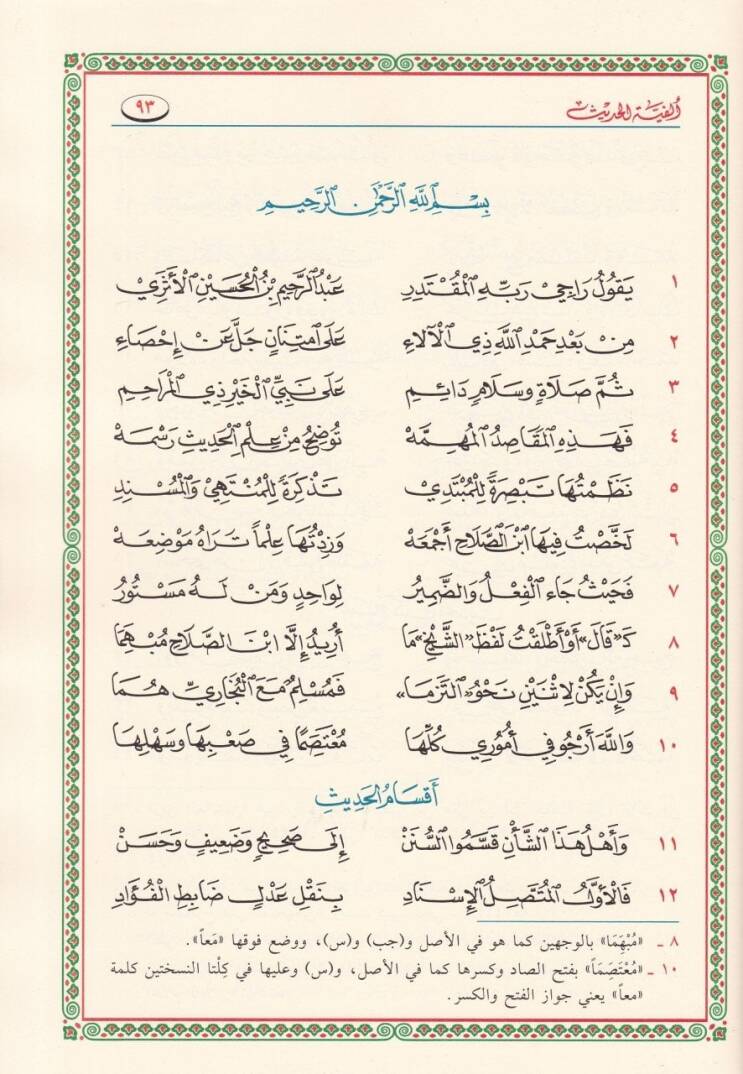 ألفية الحديث ٩٣
بِسْمِ اللَّهِ الرَّحْمَٰنِ الرَّحِيمِ
١ يَقُولُ رَاجِي رَبِّهِ الْمُقْتَدِرِ عَبْدُ الرَّحِيمِ بْنُ الْحُسَيْنِ الْأَثَرِي
٢ مِنْ بَعْدِ حَمْدِ اللَّهِ ذِي الْآلَاءِ عَلَى امْتِنَانٍ جَلَّ عَنْ إِحْصَاءِ
٣ ثُمَّ صَلَاةٍ وَسَلَامٍ دَائِمِ عَلَى نَبِيِّ الْخَيْرِ ذِي الْمَرَاحِمِ
٤ فَهَذِهِ الْمَقَاصِدُ الْمُهِمَّهْ تُوضِحُ مِنْ عِلْمِ الْحَدِيثِ رَسْمَهْ
٥ نَظَمْتُهَا تَبْصِرَةً لِلْمُبْتَدِي تَذْكِرَةً لِلْمُنْتَهِي وَالْمُسْنِدِ
٦ لَخَّصْتُ فِيهَا ابْنَ الصَّلَاحِ أَجْمَعَهْ وَزِدْتُهَا عِلْماً تَرَاهُ مَوْضِعَهْ
٧ فَحَيْثُ جَاءَ الْفِعْلُ وَالضَّمِيرُ لِوَاحِدٍ وَمَنْ لَهُ مَسْتُورُ
٨ كَـ«قَالَ» أَوْ أَطْلَقْتُ لَفْظَ «الشَّيْخِ» مَا أُرِيدُ إِلَّا ابْنَ الصَّلَاحِ مُبْهِمَا
٩ وَإِنْ يَكُنْ لِاثْنَيْنِ نَحْوُ «الْتَزَمَا» فَمُسْلِمٌ مَعَ الْبُخَارِيِّ هُمَا
١٠ وَاللَّهَ أَرْجُو فِي أُمُورِي كُلِّهَا مُعْتَصَمًا فِي صَعْبِهَا وَسَهْلِهَا
أَقْسَامُ الْحَدِيثِ
١١ وَأَهْلُ هَذَا الشَّأْنِ قَسَّمُوا السُّنَنْ إِلَى صَحِيحٍ وَضَعِيفٍ وَحَسَنْ
١٢ فَالْأَوَّلُ الْمُتَّصِلُ الْإِسْنَادِ بِنَقْلِ عَدْلٍ ضَابِطِ الْفُؤَادِ
٨ ـ «مُبْهِمَا» بالوجهين كما هو في الأصل و(جب) و(س)، ووضع فوقها «مَعاً».
١٠ ـ «مُعْتَصَمَاً» بفتح الصاد وكسرها كما في الأصل، و(س) وعليها في كِلْتا النسختين كلمة
«معاً» يعني جواز الفتح والكسر.